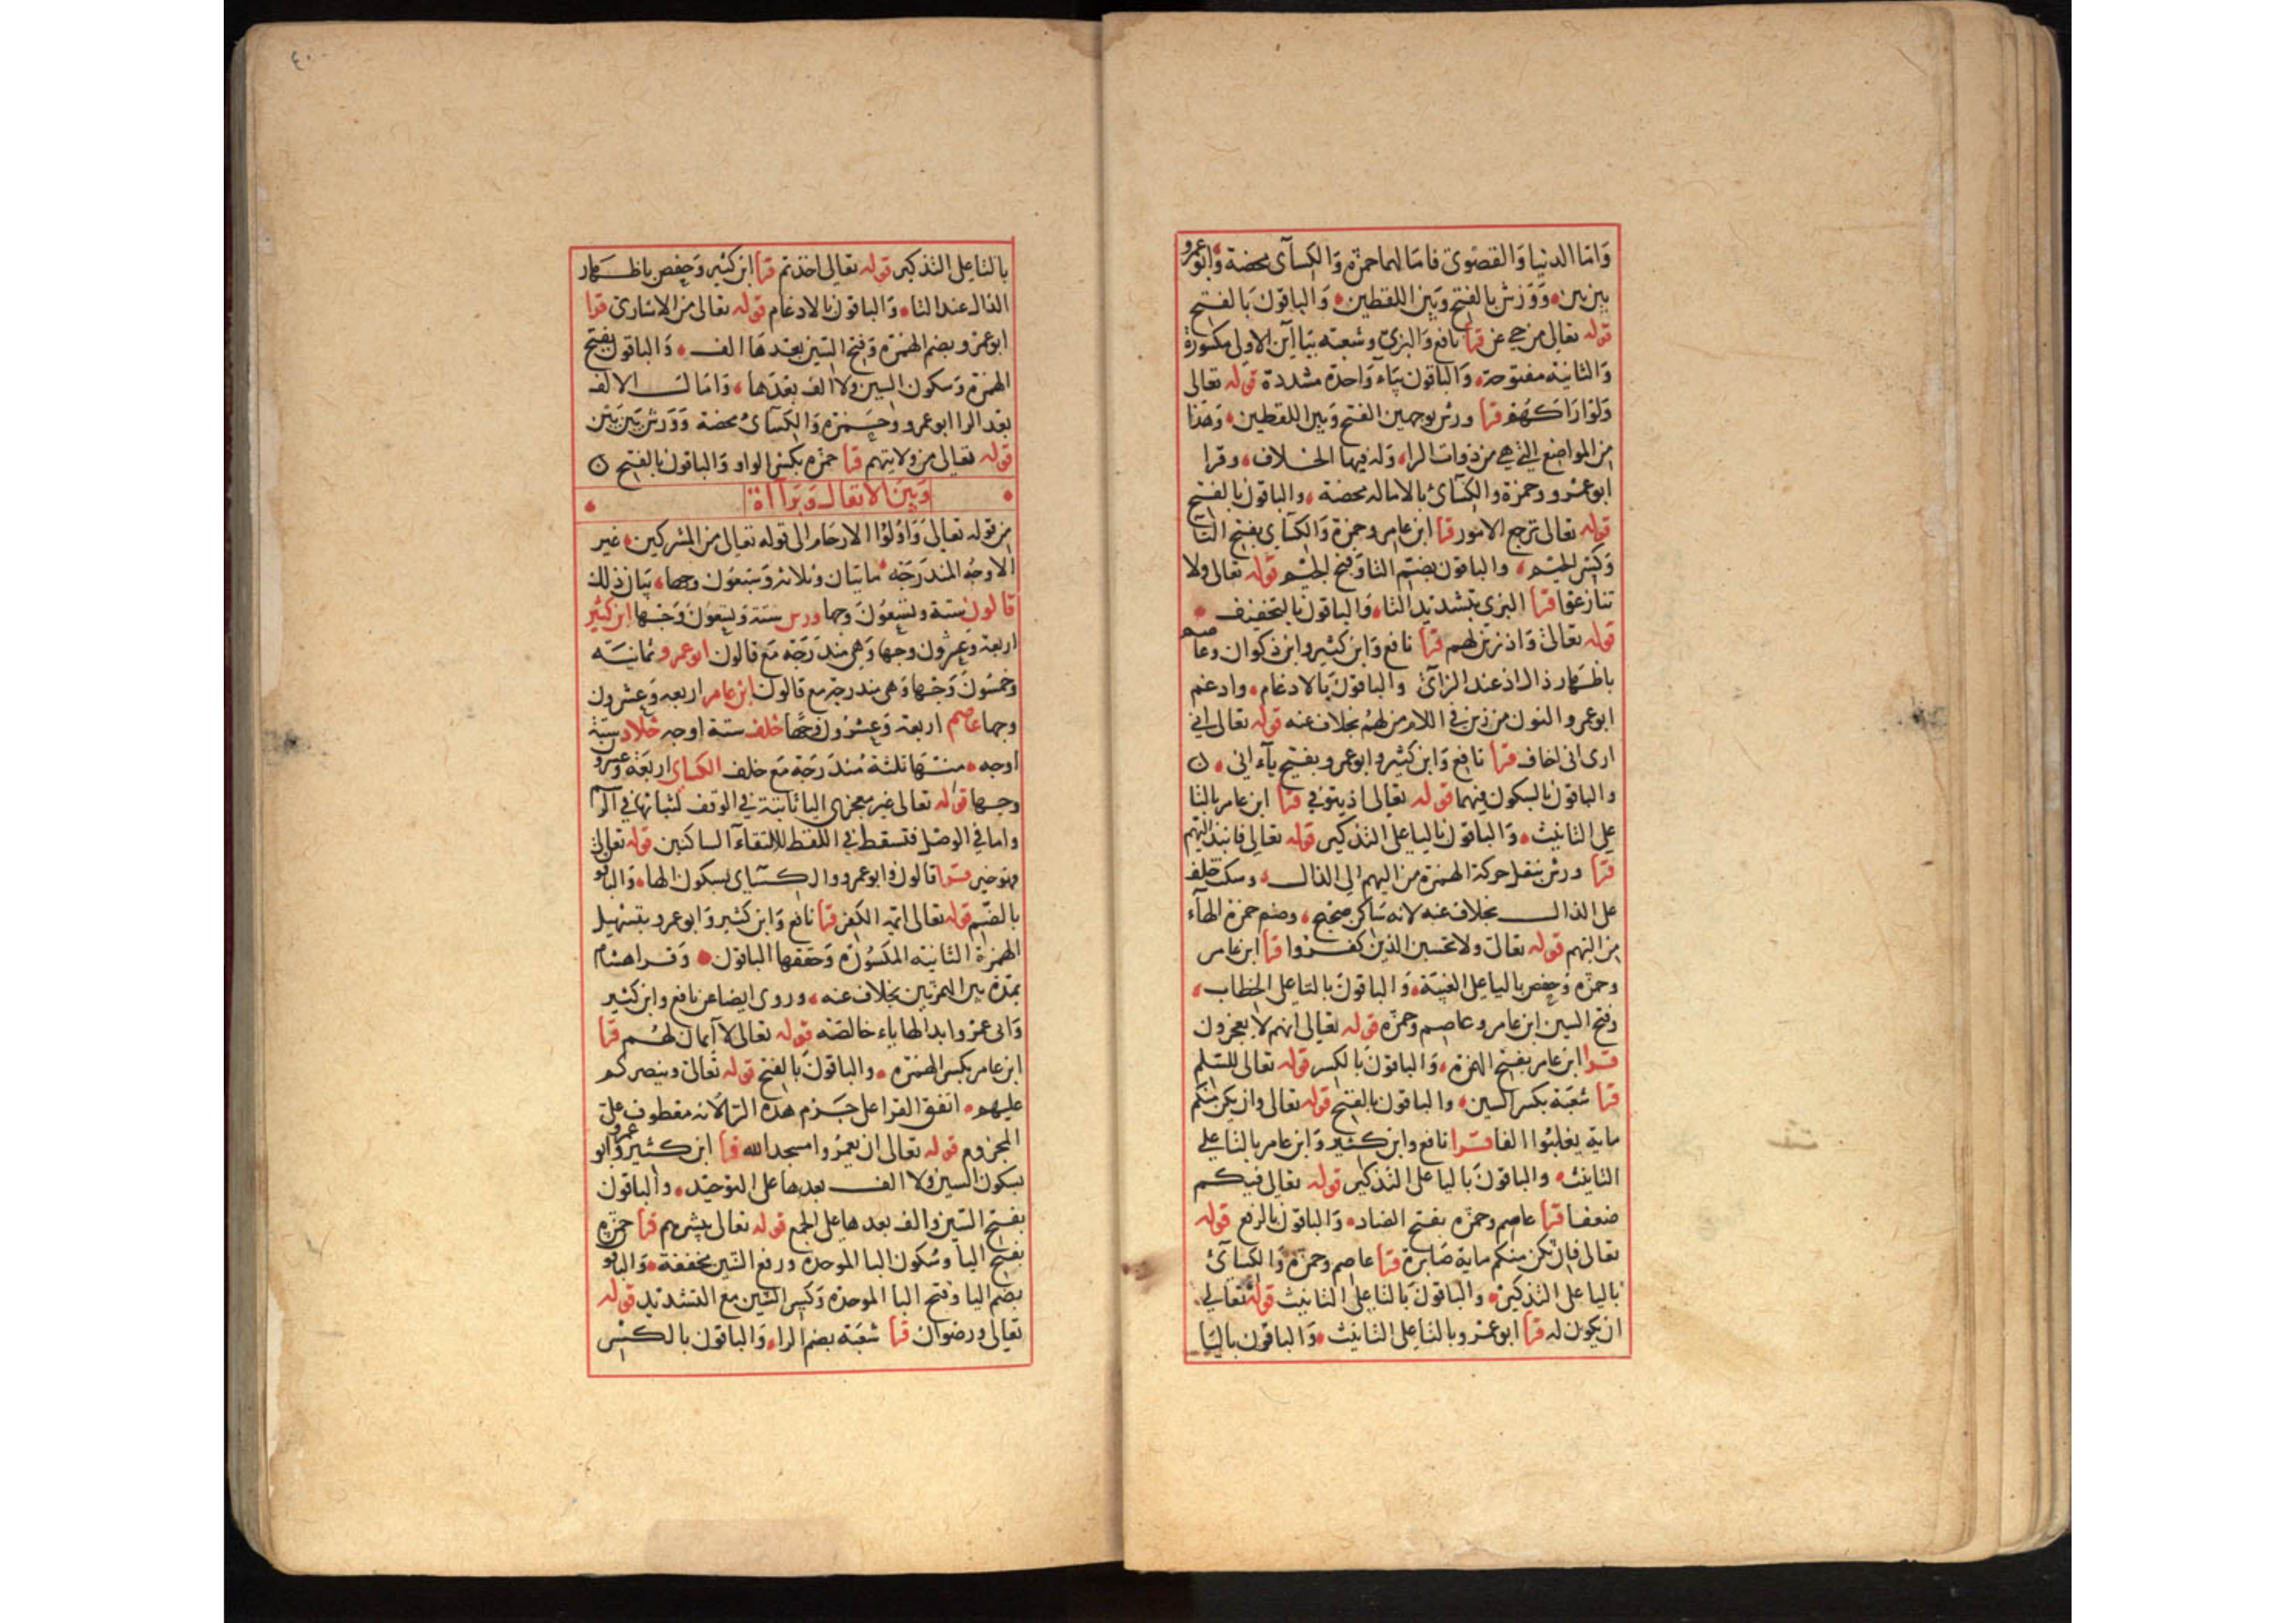 وَامّا الدنيا وَالقصْوىَ فامَا لهما حمزه وَالكسآى محضة وَابوعمرو
بين بين وَوَرش بالفتح وَبين اللفظين وَالباقون بَالفتح
قوله تعالى من حيى عن قرا نافع وَالبزى وشعبه بيَاآين الاولى مكسورة
وَالثانيه مفتوحة وَالباقون بيَاء وَاحدة مشددة قوله تعالى
وَلوْارَاكهُمْ قرا ورش بوجهين الفتح وَبين اللفظين وَهذا
من المواضع التى هى من ذوات الرا وَله فيها الخلاف وقرا
ابوعمرو وحمزة والكسآئ بالاماله محضة والباقون بالفتح
قوله تعالى ترجع الامور قرا ابن عامر وحمزة وَالكسآى بفتح التا
وَكسْر الجيم والباقون بضم التا وَفتح الجيم قوله تعالى ولا
تنازعوا قرا البزى بتشديد التا وَالباقون بالتخفيف
قوله تعالى وَاذ زين لهم قرا نافع وَابن كثير وابن ذكوان وعاصم
باظهار ذال اذ عند الزآئ والباقون بَالادغام وادغم
ابوعمرو النون من زين فى اللام من لهم بخلاف عنه قوله تعالى انى
ارى انى اخاف قرا نافع وَابن كثير وابوعمرو بفتح يآء انى ن
والباقون بالسكون فيهما قوله تعالى اذ يتوفى قرا ابن عامر بالتا
على التانيث وَالباقون باليا على التذكير قوله تعالى فانبذ اليهم
قرا ورش بنقل حركة الهمزة من اليهم الى الذال وسكت خلف
على الذال بخلاف عنه لانه سَاكن صحيح وضم حمزة الهآء
من اليهم قوله تعالى ولا تحسبن الذين كفروا قرا ابن عامر
وحمزه وَحفص باليا على الغيبَة وَالباقون بالتا على الخطاب
وفتح السين ابن عامر وعاصم وحمزه قوله تعالى انهم لا يعجزون
قرا ابن عامر بفتح الهمزة وَالباقون بَالكسر قوله تعالى للسَّلم
قرا شعبَة بكسر السين والباقون بالفتح قوله تعالى وان يكن منكم
ماية يغلبُوا الفا قرا نافع وابن كثير وَابن عامر بالتا على
التانيث والباقون بَاليا على التذكير قوله تعالى فيكم
ضعفا قرا عاصم وحمزه بفتح الضاد وَالباقون بالرفع قوله
تعالى فان يكن منكم ماية صَابرة قرا عاصم وحمزة وَالكسآئ
باليا على التذكير والباقون بَالتا على التانيث قوله تعالى
ان يكون له قرا ابوعمرو بالتا على التانيث وَالباقون باليَا
بالتا على التذكير قوله تعالى اخذتم قرا ابن كثير وَحفص باظهار
الذال عند التا وَالباقون بالادغام قوله تعالى من الاسَارى قرا
ابوعمرو بضم الهمزة وَفتح السّين بعدهَا الف وَالباقون بفتح
الهمزة وَسكون السين ولا الف بعْدَها وَامَال الالف
بعد الرا ابوعمرو وحمزه وَالكسآئ محضة وَوَرش بَين بَين
قوله تعالى من ولايتهم قرا حمزه بكسْر الواو وَالباقون بالفتح ن
وَبَينَ الانفال وَبَرَآاة
من قوله تعالى وَاوُلوُا الارحَام الى قوله تعالى من المشركين غير
الاوجُه المندرَجَه مايتان وثلاثه وَسَبْعُون وجها بيَان ذلك
قالون ستة وتسعُونَ وجها ورش ستة وَتسْعُون وَجْها ابن كثير
اربعة وَعشرون وجها وَهى مندَرَجه مَع قالون ابوعمرو ثمانيَة
وخمسُونَ وَجْها وَهى مندرجة مع قالون ابن عامر اربعه وَعشرون
وجها عاصم اربعة وَعشرُون وجْها خلف ستة اوجه خلاد ستة
اوجه منهَا ثلثة مُندَرَجَة مَع خلف الكساى اربعَة وعشرون
وجها قوله تعالى غير معجزى اليا ثابتة فى الوقف لثباتها فى الرسم
واما فى الوصل فتسقط فى اللفظ لالتقاء الساكنين قوله تعالى
فهو خير قرا قالون وَابوعمرو والكسآى بسكون الها وَالباقون
بالضم قوله تعالى ائمة الكفر قرا نافع وَابن كثير وَابوعمرو بتسْهيل
الهمزة الثانيه المكسُورة وَحَققها الباقون وَقرا هشام
بمَدة بين الهمزتين بخلاف عنه وروى ايضا عن نافع وابن كثير
وَابى عمرو ابدالها ياء خالصَة قوله تعالى لا آيمان لهُم قرا
ابن عامر بكسر الهمزه والباقون بَالفتح قوله تعَالى وينصركم
عليهم اتفق القرا على جَزم هذه الرا لانه معطوف على
المجزوم قوله تعالى ان يعمرُوا مسجد الله قرا ابن كثير وَابوعمرو
بسكون السين ولا الف بعدها على التوحيد والباقون
بفتح السّين والف بعدها على الجمع قوله تعالى يبشرهم قرا حمزه
بفتح اليا وسُكون البا الموحدة ورفع الشين مخففة وَالباقون
بضم اليا وَفتح البا الموحدة وَكسر الشين مع التشديد قوله
تعالى ورضوان قرا شعبَة بضم الرا وَالباقون بالكسْر